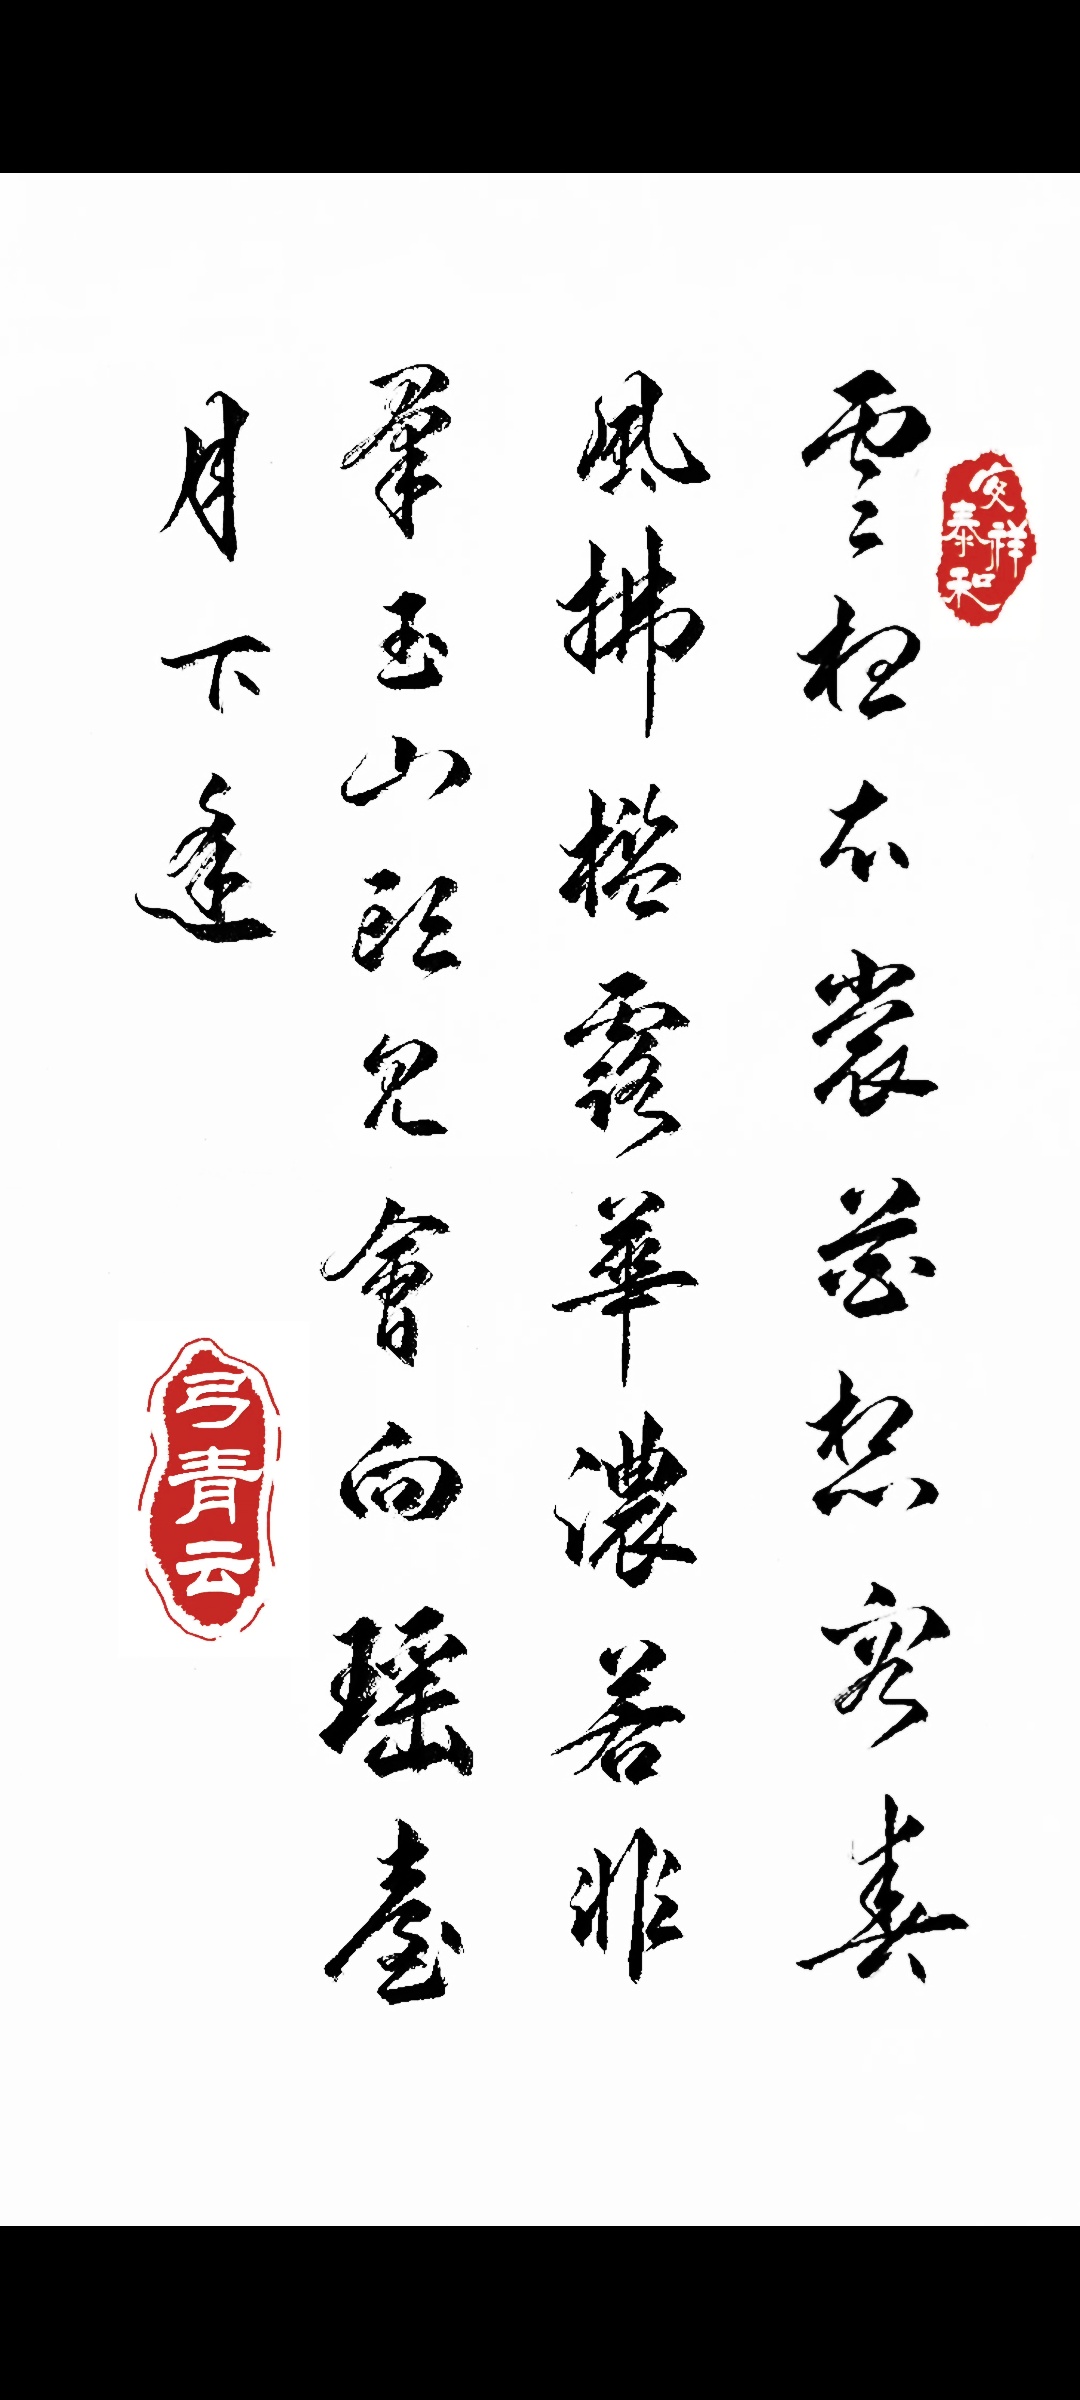 安祥泰和
雲想衣裳花想容春
風拂檻露華濃若非
羣玉山頭見會向瑶臺
月下逢
弓青云